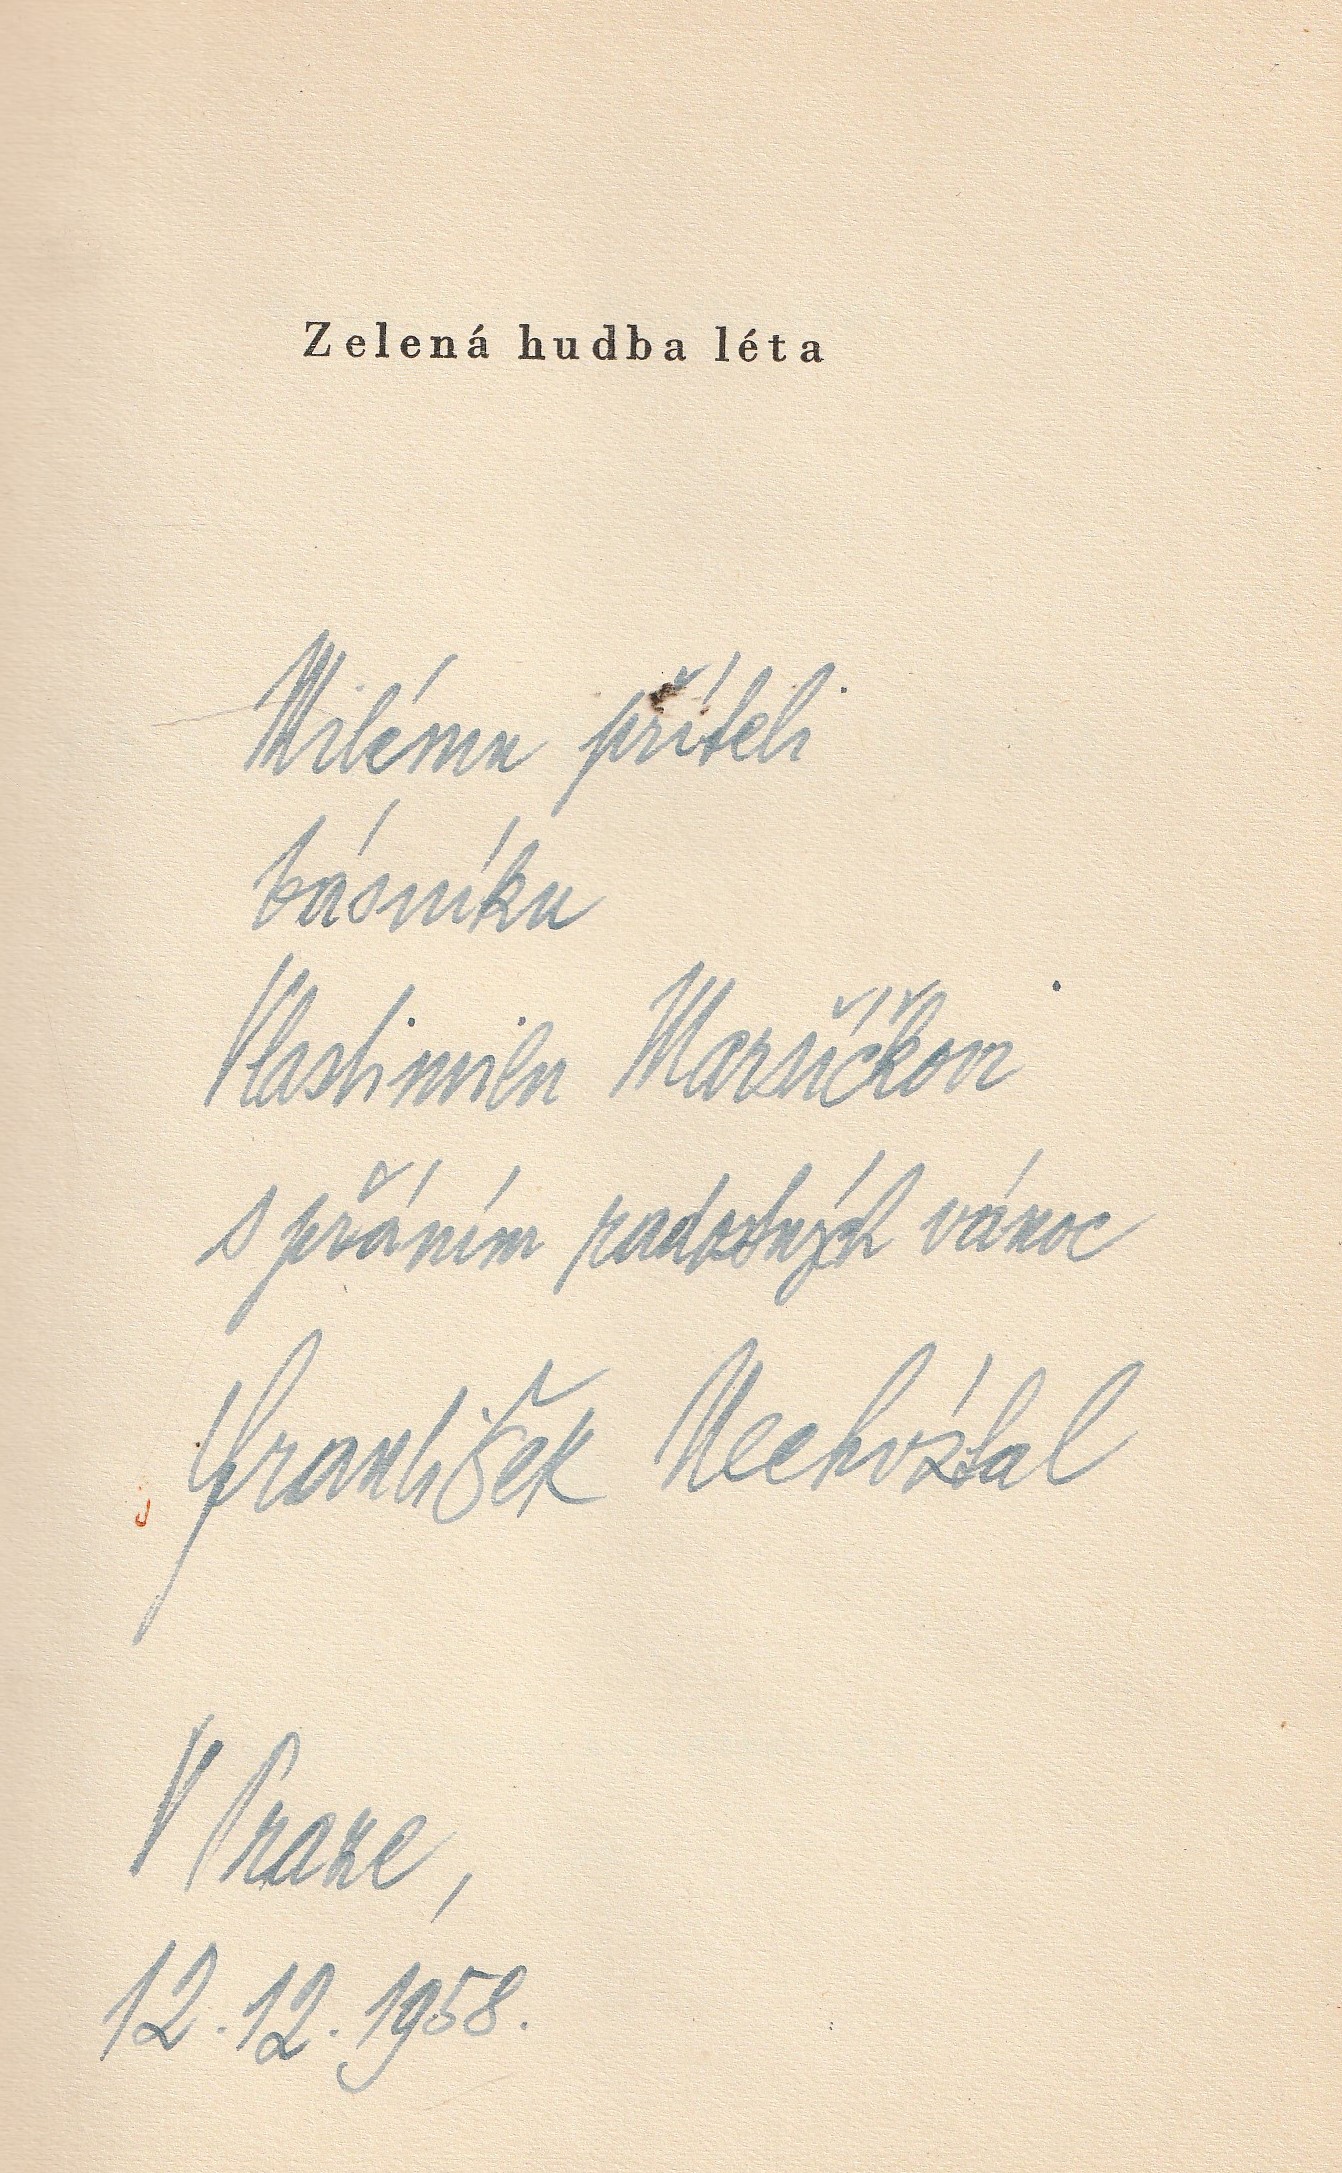 Zelená hudba léta
Milému příteli
básníku
Vlastimilu Maršíčkovi
s přáním radostných vánoc
František Nechvátal
V Praze,
12.12.1958.